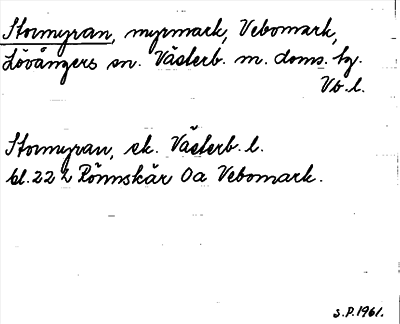 Stormyran, myrmark, Vebomark,
Lövångers sn. Västerb. m. doms. tg.
Vb. l.
Stormyran, ek. Västerb. l.
bl. 22 L Rönnskär Oa Vebomark.
S.P. 1961.